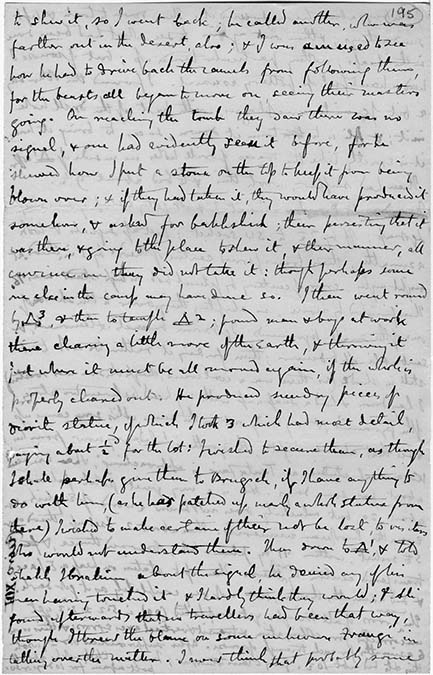 195
to shew it, so I went back; he called another, who was
farther out in the desert, also; & I was amused to see
how he had to drive back the camels from following them,
for the beasts all began to move on seeing their masters
going. On reaching the tomb they saw there was no
signal, & one had evidently seen it before, for he
shewed how I put a stone on the top to keep it from being
blown over; & if they had taken it, they would have produced it
somehow, & asked for bakhshish; their persisting that it
was there, & going to the place to shew it & their manner, all
convince me they did not take it: though perhaps some
one else in the camp may have done so. I then went round
by Δ3, & then to temple Δ2; found man & boys at work
there clearing a little more of the earth, & throwing it
just where it must be all moved again, if the whole is
properly cleaned out. He produced sundry pieces of
diorite statue, of which I took 3 which had most detail,
paying about ½ for the lot: I wished to secure them, as though
I shall perhaps give them to Brugsch, if I have anything to
do with him, (as he has patched up nearly a whole statue from
there) I wished to make certain of their not be lost to visitors
who would not understand them. Then down to Δ1, & told
Shekh Ibrahim about the signal, he denied any of his
men having touched it & I hardly think they would; & Ali
found afterwards that travellers had been that way,
though I threw the blame on some unknown in
talking over the matter. I now think that probably some